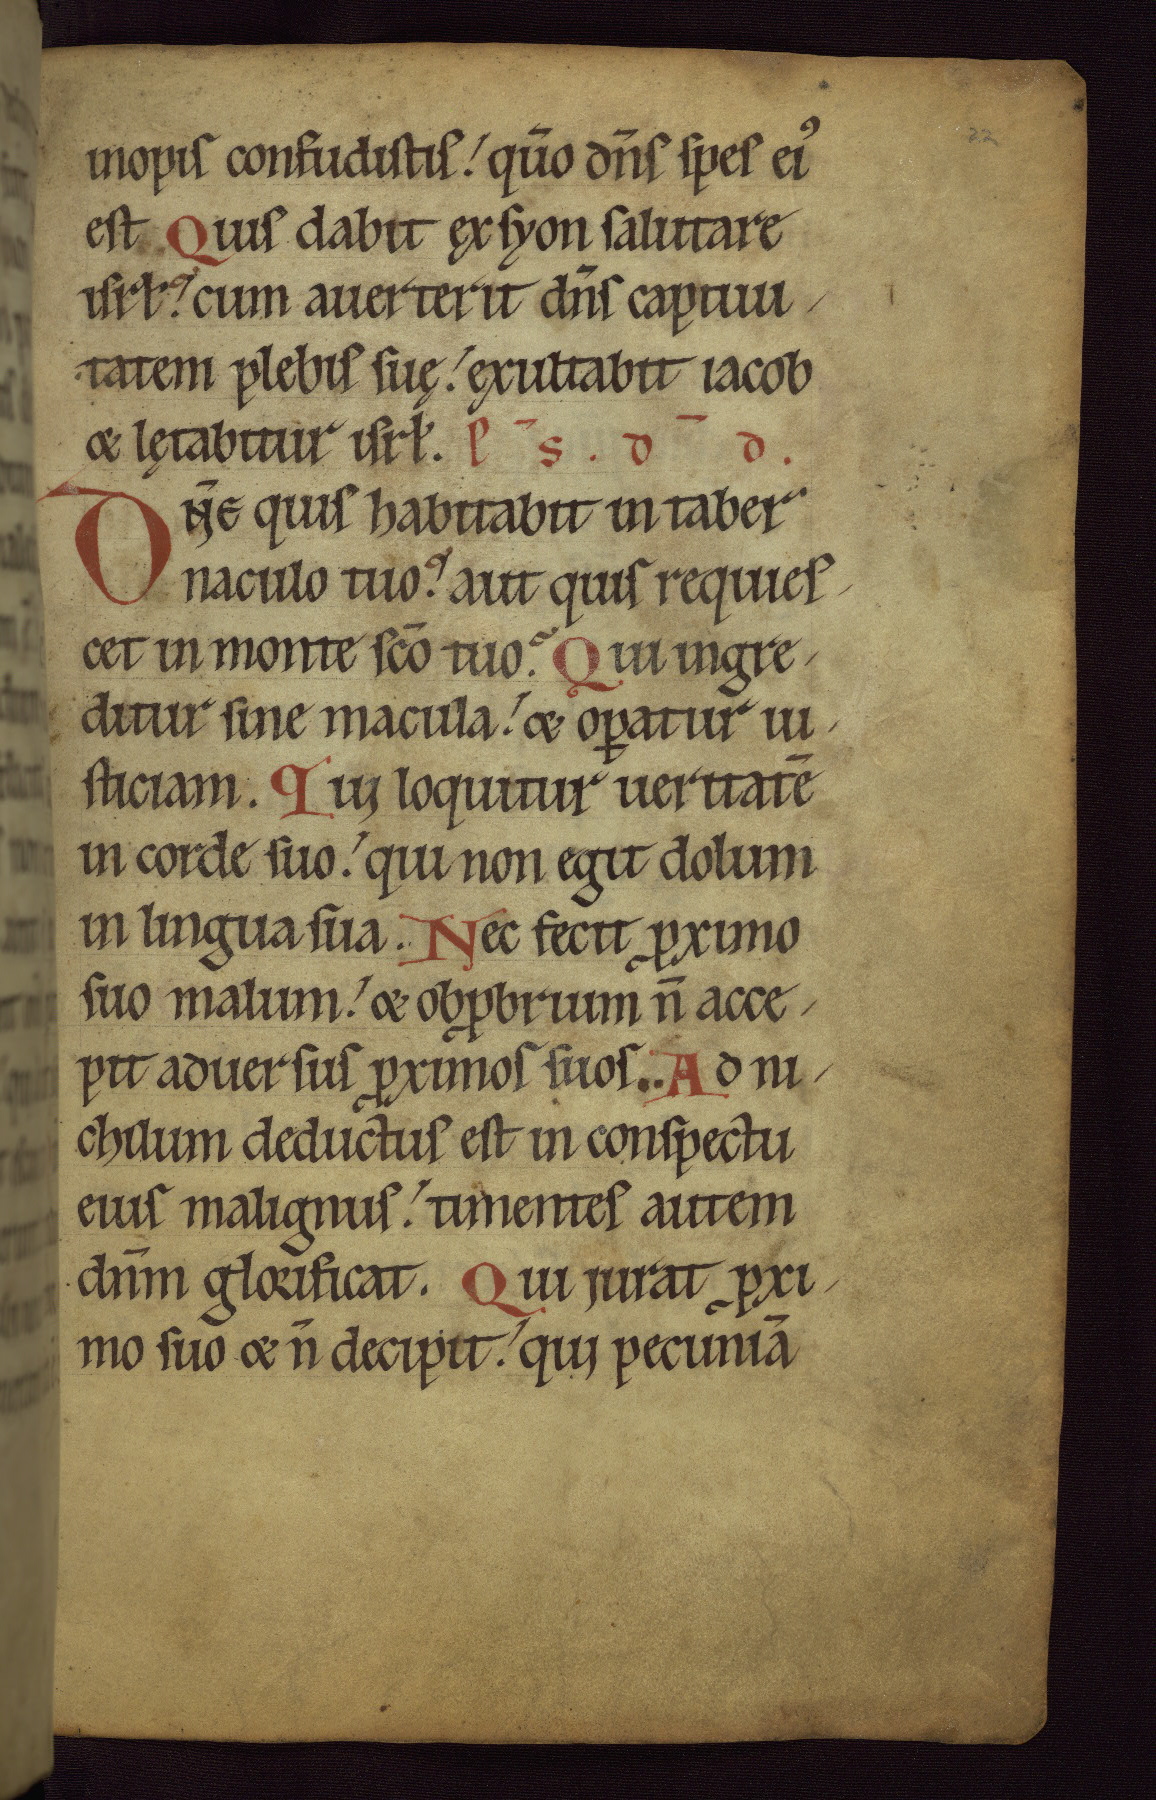 inopis confudistis! qūo dn̄s spes ei᾿
est Quis dabit ęx syon salutare
isrł? cum auerterit dn̄s captiui
tatem plebis suę! ęxultabit iacob
& lętabitur isrł. p̄ s . d̄ d .
Dn̄e quis habitabit in taber
naculo tuo? aut quis requies
cet in monte sc̄o tuo? Qui ingre
ditur sine macula! & oꝑatur iu
sticiam. Qui loquitur ueritatē
in corde suo! qui non egit dolum
in lingua sua. Nec fecit ꝓximo
suo malum! & obꝓbrium n̄ acce
pit aduersus ꝓximos suos.. Ad ni
chilum deductus est in conspectu
eius malignus! timentes autem
dn̄m glorificat. Qui iurat ꝓxi
mo suo & n̄ decipit! qui pecuniā
22